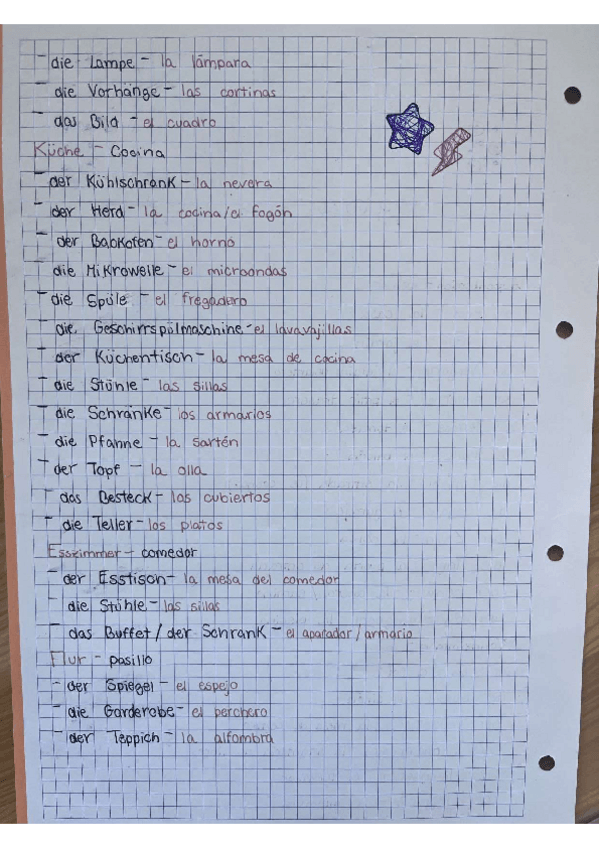 - die Lampe - la lámpara
- die Vorhänge - las cortinas
- das Bild - el cuadro
Küche - Cocina
- der Kühlschrank - la nevera
- der Herd - la cocina/el fogón
- der Backofen - el horno
- die Mikrowelle - el microondas
- die Spüle - el fregadero
- die Geschirrspülmaschine - el lavavajillas
- der Küchentisch - la mesa de cocina
- die Stühle - las sillas
- die Schränke - los armarios
- die Pfanne - la sartén
- der Topf - la olla
- das Besteck - los cubiertos
- die Teller - los platos
Esszimmer - comedor
- der Esstisch - la mesa del comedor
- die Stühle - las sillas
- das Buffet / der Schrank - el aparador / armario
Flur - pasillo
- der Spiegel - el espejo
- die Garderobe - el perchero
- der Teppich - la alfombra